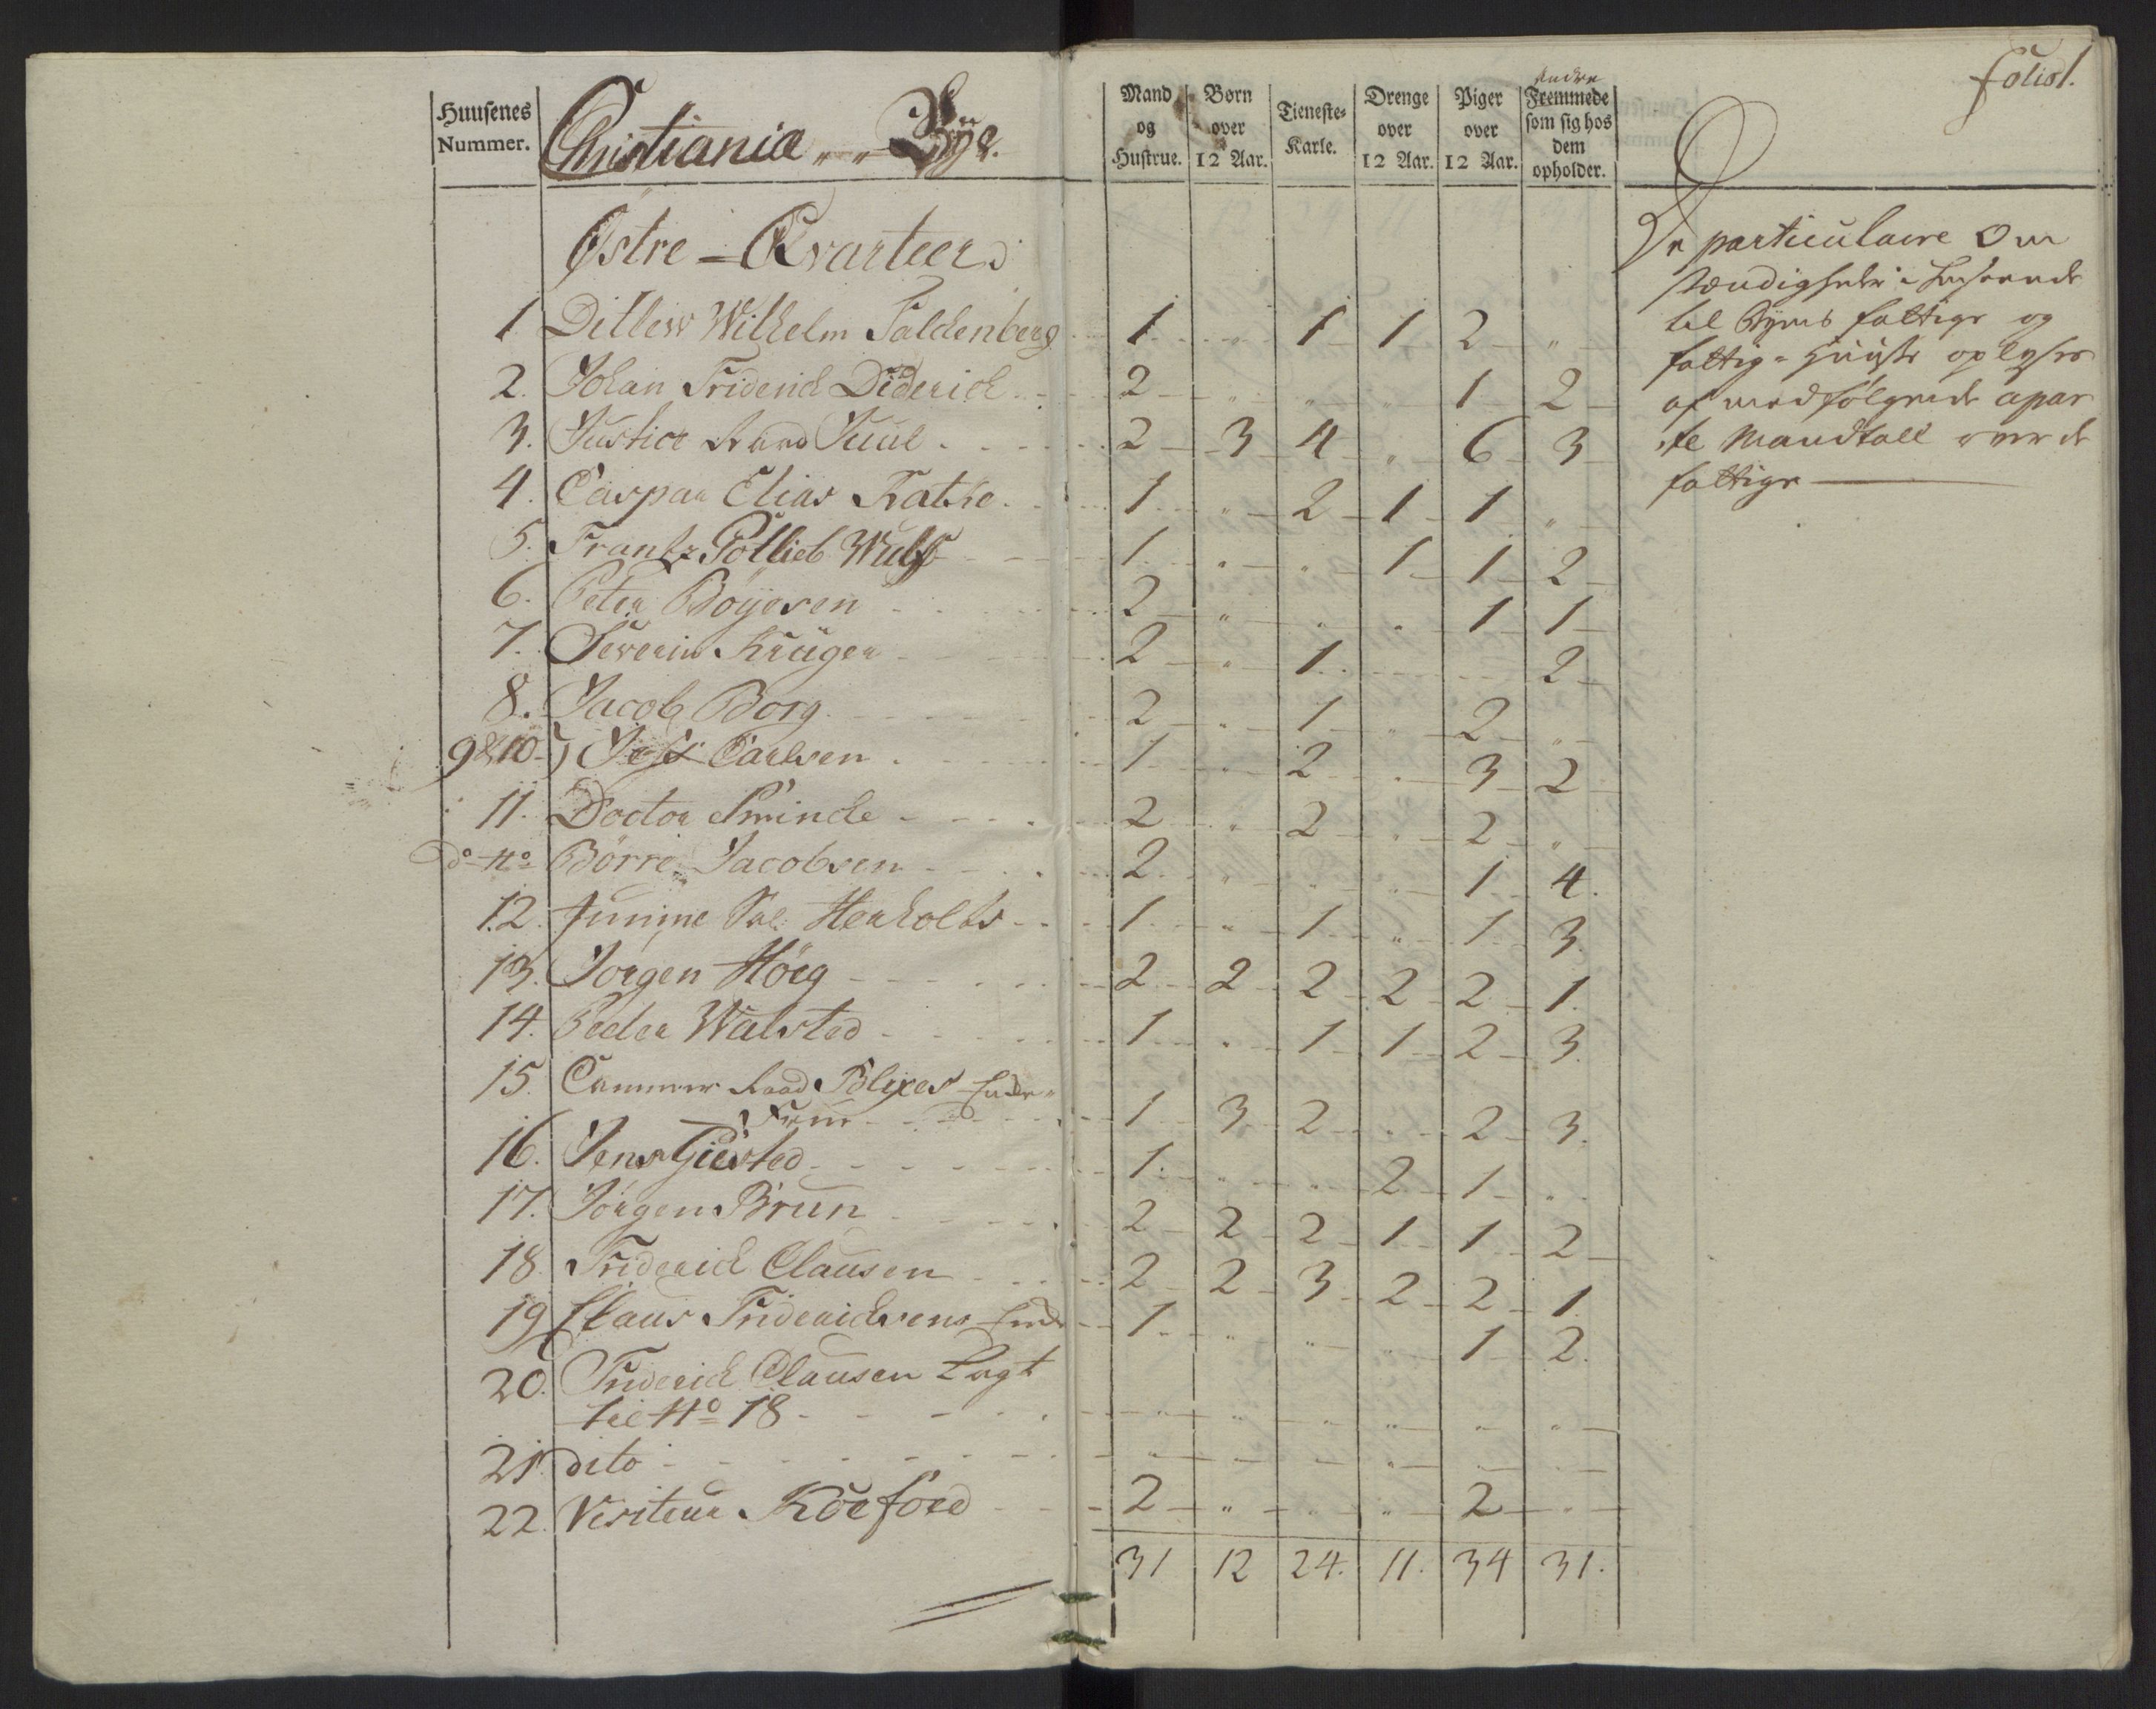 Huusenes
Nummer.
Christiania Bye.
Mand og Hustrue.
Børn over 12 Aar.
Tieneste-Karle.
Drenge over 12 Aar.
Piger over 12 Aar.
Andre
Fremmede som sig hos dem opholder.
folio 1.
Østre-Qvarteer
1 Ditlew Wilhelm Saldenberg 1 " 1 1 2 "
2. Johan Friderich Diderich 2 " " " 1 2
3. Justice Raad Juul 2 3 4 " 6 3
4. Caspar Elias Ratke 1 " 2 1 1 "
5. Frantz Gotlieb Wulf 1 " " 1 1 2
6. Peter Böyesen 2 " " " 1 1
7. Severin Krüger 2 " 1 2
8. Jacob Borg 2 " 1 " 2 "
9 & 10 Carlsen 1 " 2 " 3 2
11. Doctor Sminde 2 " 2 " 2 "
Do No Börre Jacobsen 2 " " " 1 4.
12. Sal: Herholds 1 " 1 " 1 3.
13. Jörgen Höeg 2 2 2 2 2 1.
14. Peder Walsted 1 " 1 1 2 3.
15. Cammer Raad Blixes Enke-
Frue 1 3 2 " 2 3.
16. Jens Giested 1 " " 2 1 "
17. Jörgen Brun 2 2 2 1 1 2
18. Friderich Clausen 2 2 3 2 2 1
19 Claus Friderichsens Enke 1 " " " 1 2.
20. Friderich Clausen Lagt
til No 18 " " " " " "
21. dito " " " " " "
22. Visiteur Köefoed 2 " " " 2 "
31 12 24. 11. 34 31.
De particulaire Om
stændigheder i Henseende
til Byens fattige og
fattig-Huuse oplyses
af medfølgende apar
te Mandtall over de
fattige